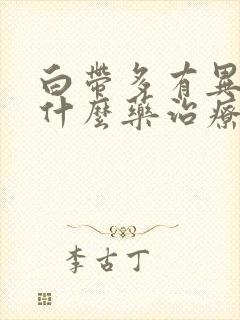 白帶多有異
什麼藥治療
李古丁